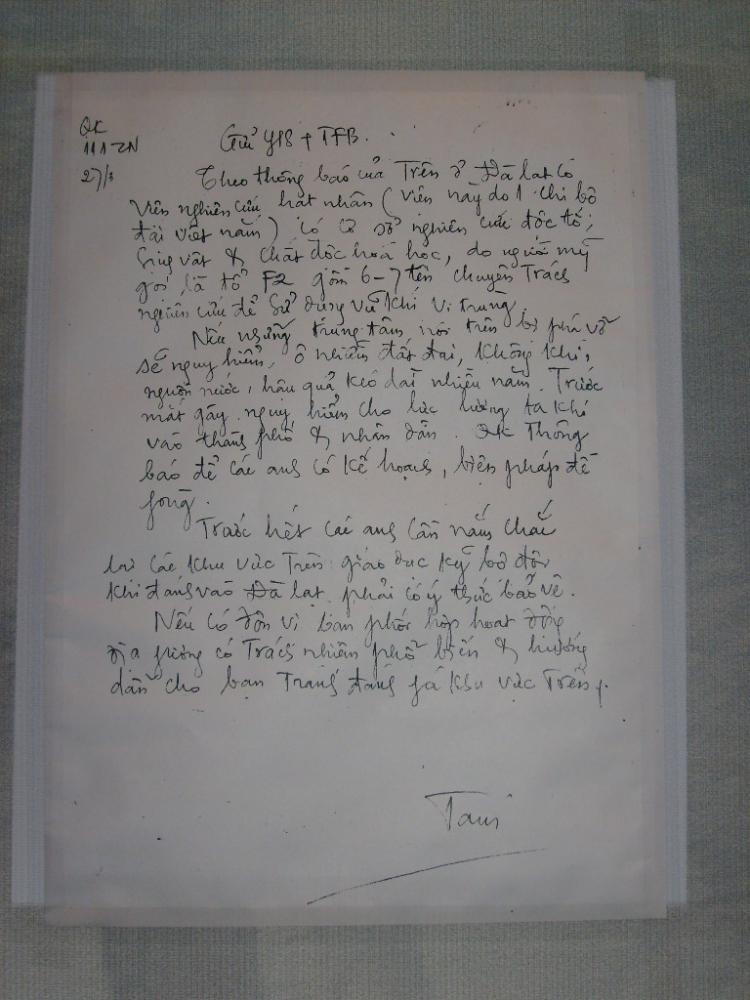 QK
111-ZN
27/3
Gửi Y18 + TFB.
Theo thông báo của Trên ở Đà lạt có
Viên nghiên cứu hạt nhân ( Viên này do 1 chi bộ
đại Việt nắm ) có cơ sở nghiên cứu độc tố,
sing vật & chất độc hoá học, do người mỹ
gọi là tổ F2 gồm 6-7 tên chuyên Trách
nghiên cứu để sử dụng vũ khí vi trùng.
Nếu những trung tâm nói trên bị phá vỡ
sẽ nguy hiểm, ô nhiễm đất đai, không khí,
nguồn nước, hậu quả kéo dài nhiều năm. Trước
mắt gây nguy hiểm cho lực lượng ta khi
vào thành phố & nhân dân. QK Thông
báo để các anh có kế hoạch, biện pháp đề
fòng.
Trước hết các anh cần nắm chắc
lại các khu vực Trên giáo dục kỹ bộ đội
khi đánh vào Đà lạt phải có ý thức bảo vệ.
Nếu có đơn vị bạn phối hợp hoạt động
địa fương có Trách nhiệm phổ biến & hướng
dẫn cho bạn Tránh đánh fá khu vực Trên.